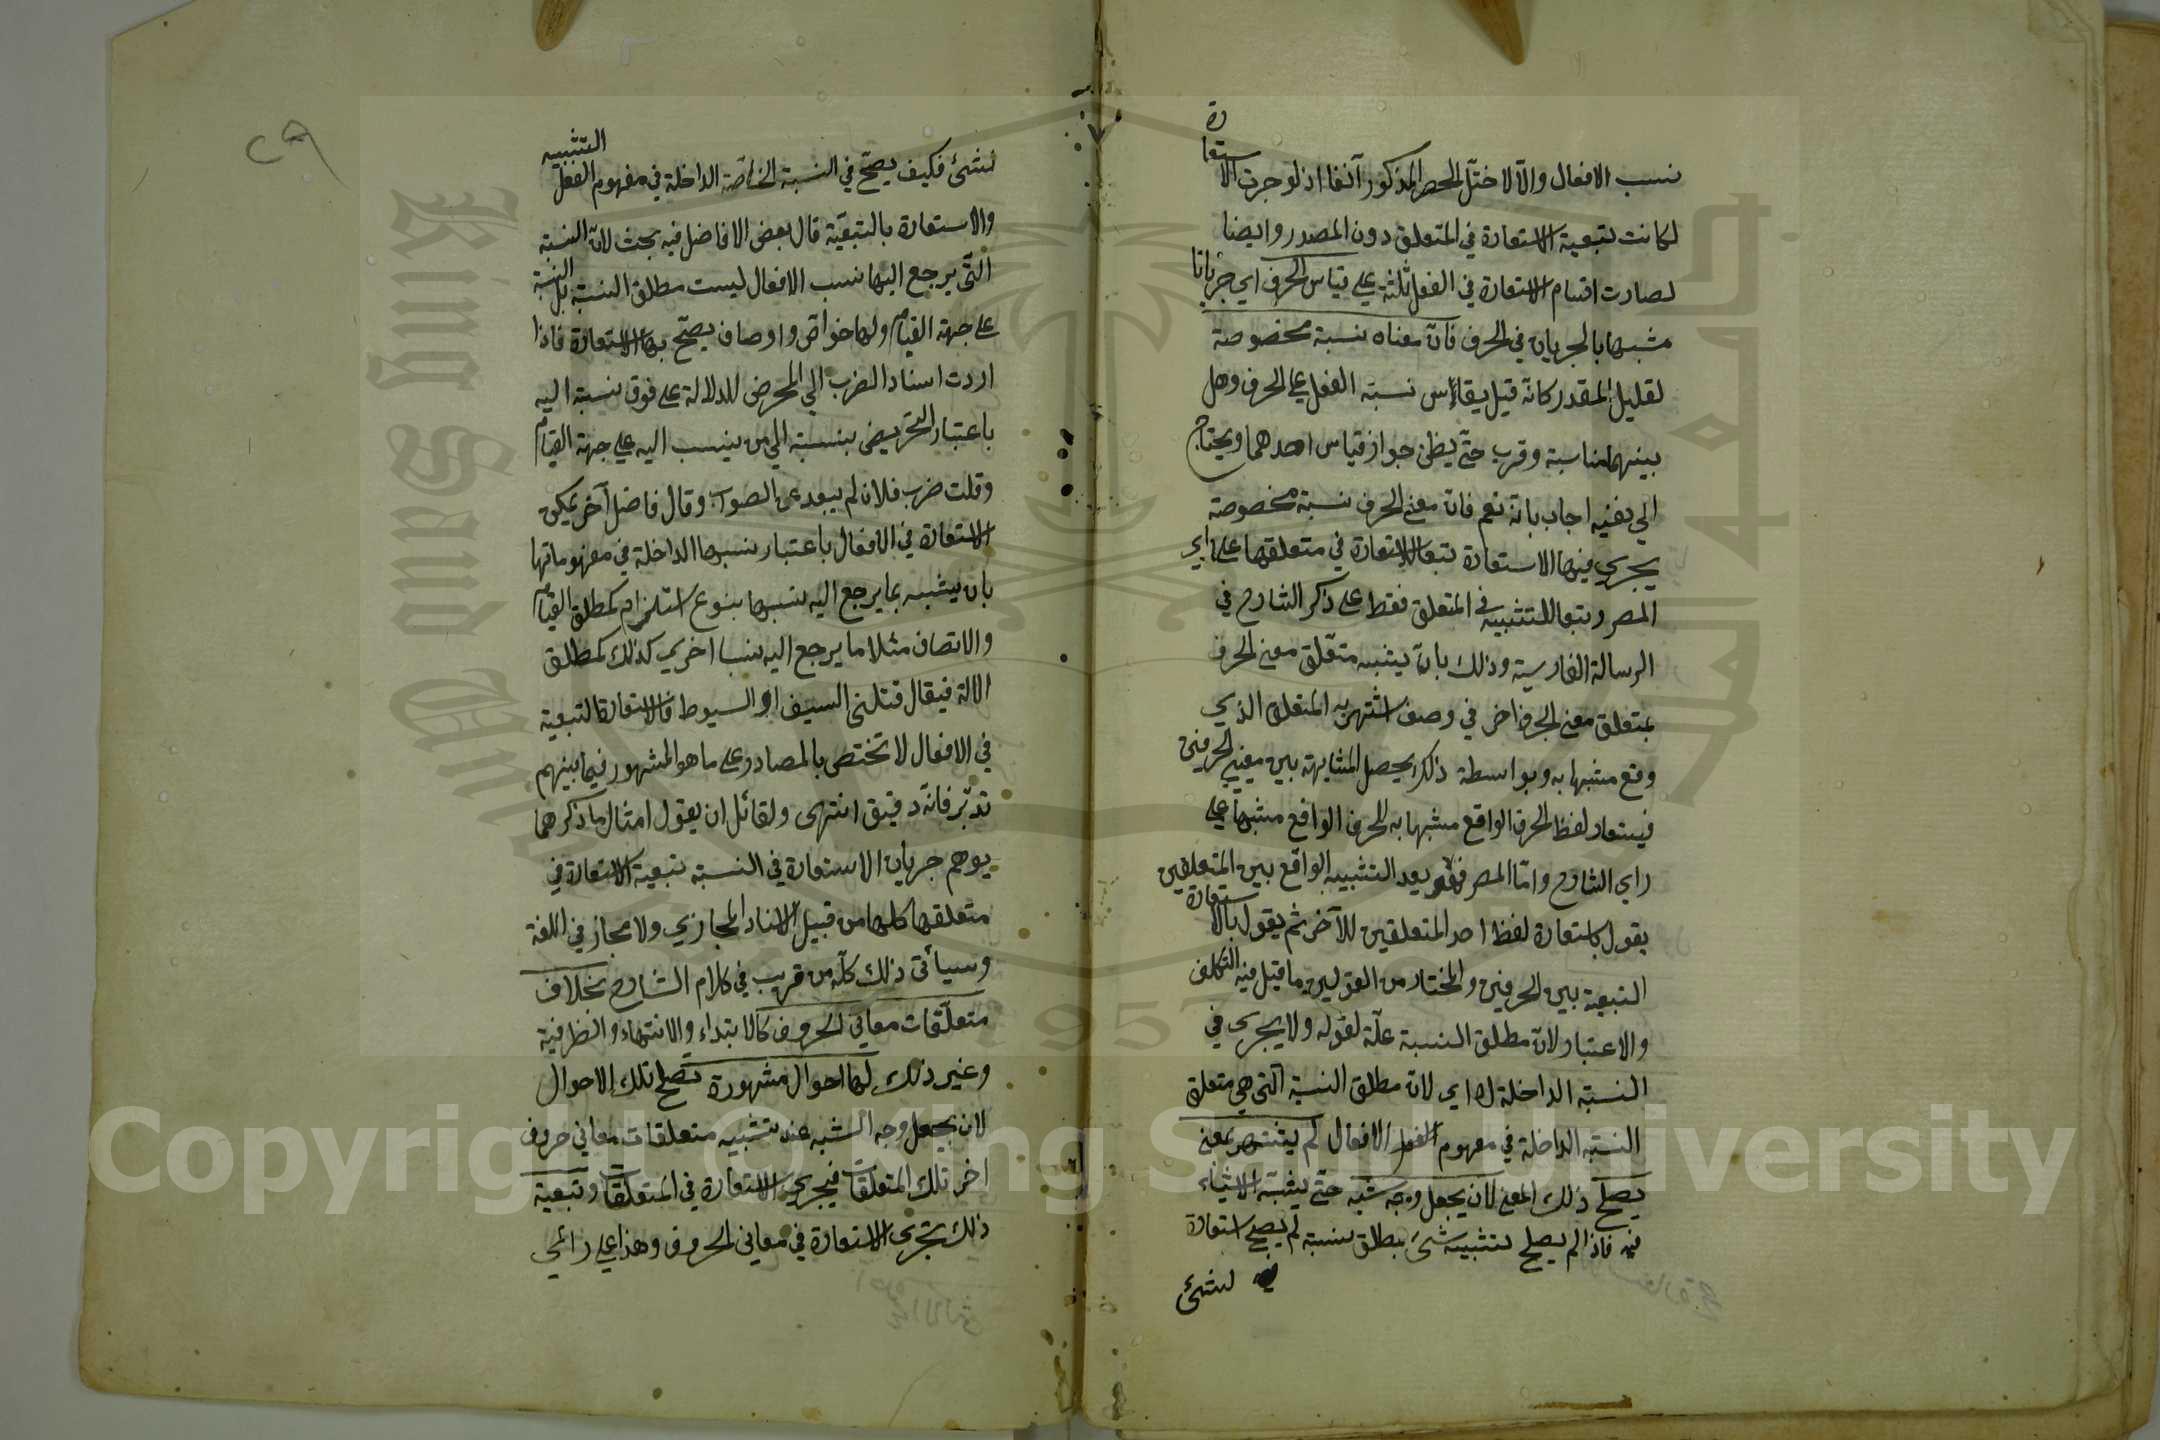 نسب الافعال والّا لاختلّ الحصر المذكور آنفا اذ لو جرت الاستعارة
لكانت بتبعية الاستعارة في المتعلق دون المصدر وايضا
لصارت اقسام الاستعارة في الفعل ثلثة على قياس الحرف اي جريانا
مشبها بالجريان في الحرف فان معناه نسبة مخصوصة
لقليل المقدر كانه قيل يقاس نسبة الفعل على الحرف وهل
بينهما مناسبة وقرب حتى يظن جواز قياس احدهما ويحتاج
الى نفيه اجاب بانه نعم فان معنى الحرف نسبة مخصوصة
يجري فيها الاستعارة تبعا للاستعارة في متعلقها على راي
المصر وتبعا للتشبيه في المتعلق فقط على ذكر الشارح في
الرسالة الفارسية وذلك بان يشبه متعلق معنى الحرف
بمتعلق معنى الحرف اخر في وصف اشتهر به المتعلق الذي
وقع مشبها به وبواسطة ذلك يحصل المشابهة بين معنيي الحرفين
فيستعار لفظ الحرف الواقع مشبها به للحرف الواقع مشبها على
راي الشارح وامّا المصر فهو بعد التشبيه الواقع بين المتعلقين
يقول باستعارة لفظ احد المتعلقين للآخر ثم يقول بالاستعارة
التبعية بين الحرفين والمختار من القولين ما قيل فيه التكلف
والاعتبار لان مطلق النسبة علّة لقوله ولا يجري في
النسبة الداخلة اه اي لان مطلق النسبة التي هي متعلق
النسبة الداخلة في مفهوم الافعال لم يشتهر بمعنى
يصلح ذلك المعنى لان يجعل وجه شبه حتى يشبه الاشياء
فيه فاذا لم يصلح لتشبيه شيء بمطلق نسبة لم يصح استعارة
لشئ
لشئ فكيف يصحّ في النسبة الخاصّة الداخلة في مفهوم الفعل التشبيه
والاستعارة بالتبعيّة قال بعض الافاضل فيه بحث لان النسبة
التّى يرجع اليها نسب الافعال ليست مطلق النسبة بل النسبة
على جهة القيام ولها خواصّ واوصاف يصحّ بها الاستعارة فاذا
اردت اسناد الضرب الى المحرض للدلالة على قوة نسبة اليه
باعتبار التحريض بنسبة الى من ينسب اليه على جهة القيام
وقلت ضرب فلان لم يبعد عن الصواب وقال فاضل آخر يمكن
الاستعارة في الافعال باعتبار نسبها الداخلة في مفهوماتها
بان يشبه بما يرجع اليه نسبها بنوع استلزام كمطلق القيام
والاتصاف مثلا ما يرجع اليه نسبا اخرى كذلك كمطلق
الالة فيقال قتلنى السيف او السيوط فالاستعارة التبعية
في الافعال لا تختص بالمصادر على ما هو المشهور فيما بينهم
تدبّر فانّه دقيق انتهى ولقائل ان يقول امثال ما ذكر هما
يوهم جريان الاستعارة في النسبة بتبعية الاستعارة في
متعلقها كلها من قبيل الاسناد المجازي ولا مجاز في اللغة
وسيأتى ذلك كلّه من قريب في كلام الشارح بخلاف
متعلّقات معاني الحروف كالابتداء والانتهاء والظرفية
وغير ذلك لها احوال مشهورة تصلح تلك الاحوال
لان يجعل وجه الشبه عند تشبيه متعلقات معاني حروف
اخر تلك المتعلقات فيجري الاستعارة في المتعلقات وتبعية
ذلك تجري الاستعارة في معاني الحروف وهذا على رائي
٢٩
King Saud University
جامعة الملك سعود
1957
Copyright © King Saud University